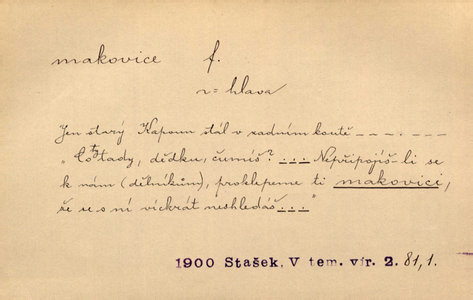 makovice f.
v= hlava
Jen starý Kapoun stál v zadním koutě _ _ _ . _ _
„Co ty tady, dědku, čumíš? ... Nepřipojíš-li se
k nám (dělníkům), proklepeme ti makovici,
že se s ní víckrát neshledáš ..."
1900 Stašek, V tem. vír. 2. 81,1.